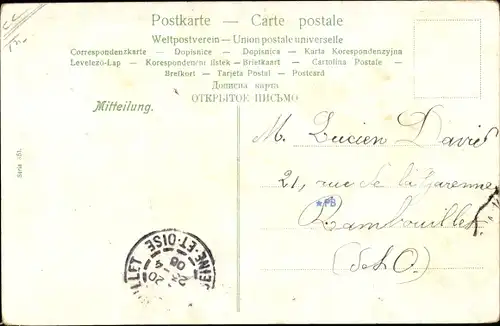 Postkarte — Carte postale
Weltpostverein — Union postale universelle
Correspondenzkarte — Dopisnice — Dopisnica — Karta Korespondenzyjna
Levelező-Lap — Korespondenčni listek — Briefkaart — Cartolina Postale —
Brefkort — Tarjeta Postal — Postcard
Дописна карт
ОТКРЫТОЕ ПИСЬМО
Mitteilung.
Serie 451.
M. Lucien David
21, rue de la Garenne
*PB
Rambouillet
(S & O.)
SEINE-ET-OISE
08